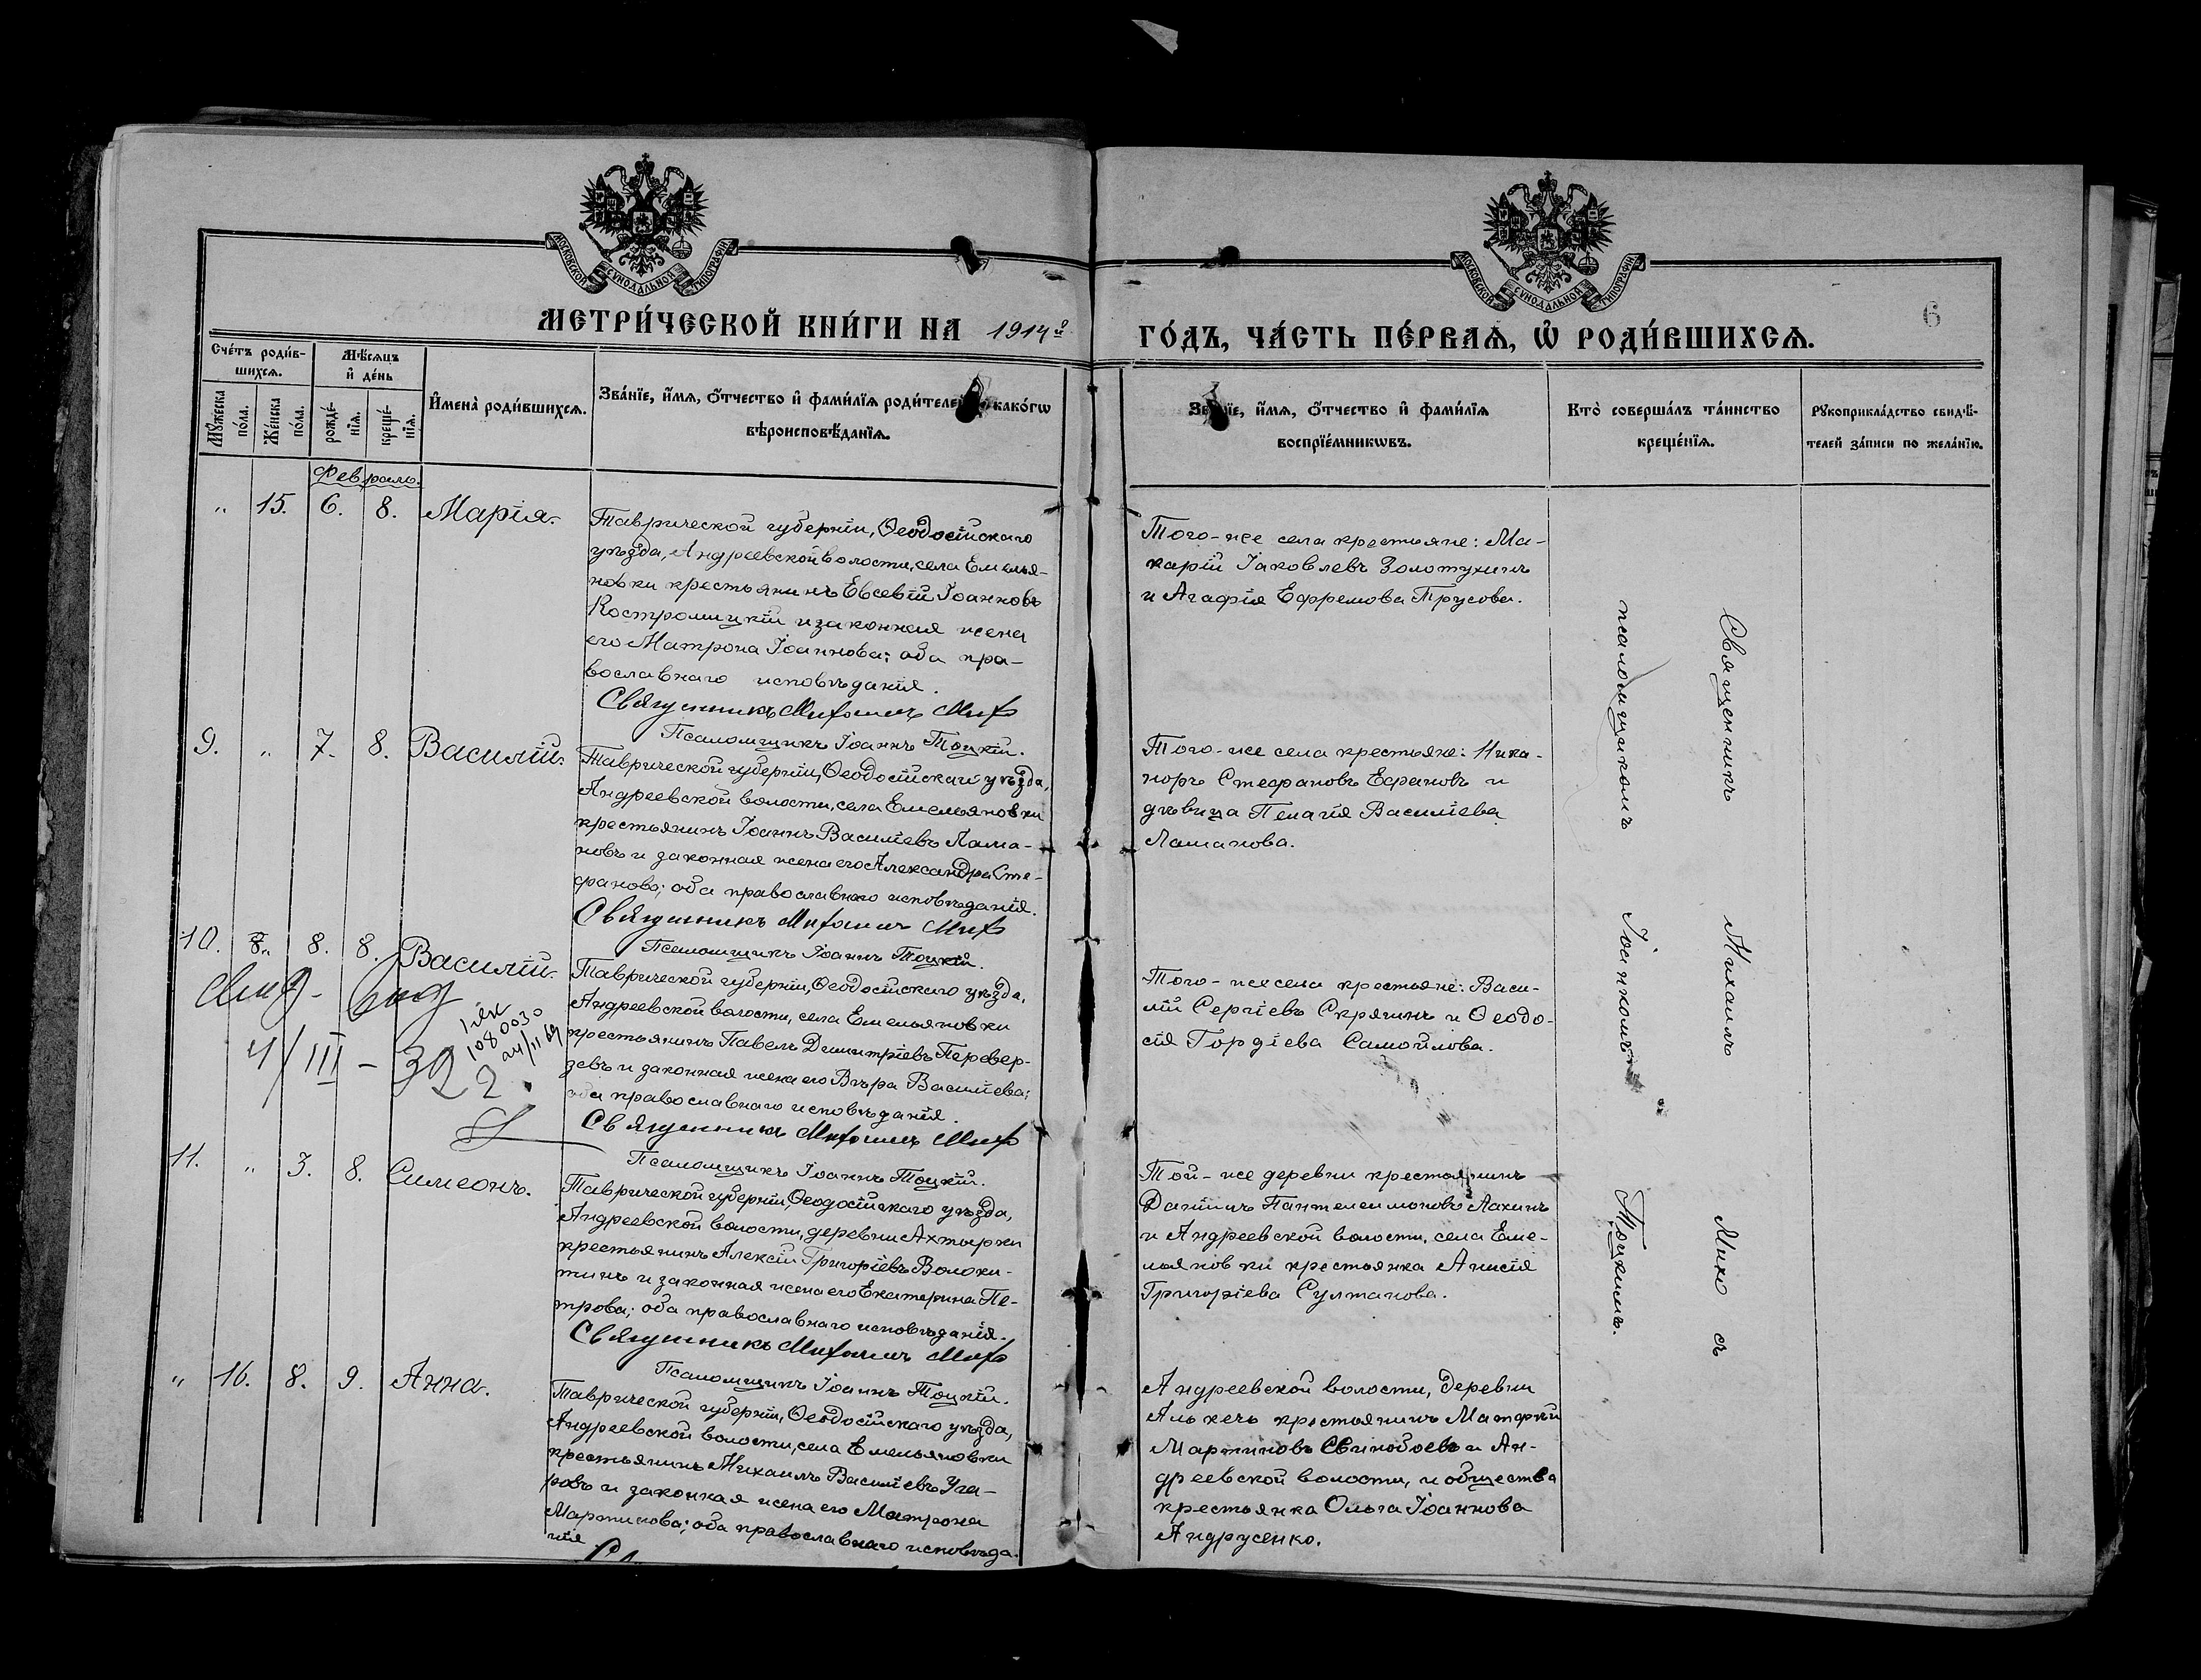 МОСКОВСКОЙ СѴНОДАЛЬНОЙ ТИПОГРАФІИ
МОСКОВСКОЙ СѴНОДАЛЬНОЙ ТИПОГРАФІИ
6
МЕТРИ́ЧЕСКОЙ КНИ́ГИ НА 1914й
ГО́ДЪ, ЧА́СТЬ ПЕ́РВАѦ, Ѡ РОДИ́ВШИХСѦ.
Сче́тъ роди́в-
шихсѧ.
Мꙋ́жеска по́ла.
Же́нска по́ла.
Мѣ́сѧцъ и҆ де́нь
рожде́-нїѧ.
креще́-нїѧ.
И҆мена̀ роди́вшихсѧ.
Зва́нїе, и҆́мѧ, ѻ҆́тчество и҆ фами́лїѧ роди́телей какогѡ
вѣроисповѣ́данїѧ.
Зва́нїе, и҆́мѧ, ѻ҆́тчество и҆ фами́лїѧ
воспрїе́мникѡвъ.
Кто̀ соверша́лъ та́инство
креще́нїѧ.
Рꙋкоприкла́дство свидѣ́-
телей за́писи по жела́нїю.
Февраль.
„ 15. 6. 8. Марія.
Таврической губерніи, Ѳеодосійскаго
уѣзда, Андреевской волости, села Емелья-
новки крестьянинъ Евсевій Іоанновъ
Костромицкій и законная жена
его Матрона Іоаннова; оба пра-
вославнаго исповѣданія.
Священникъ Михаилъ
Псаломщикъ Іоаннъ Тоцкій.
Того-же села крестьяне: Ма-
карій Іаковлевъ Золотухинъ
и Агафія Ефремова Трусова.
9. „ 7. 8. Василій.
Таврической губерніи, Ѳеодосійскаго уѣзда,
Андреевской волости, села Емельяновки
крестьянинъ Іоаннъ Василіевъ Лама-
новъ и законная жена его Александра Сте-
фанова; оба православнаго исповѣданія.
Священникъ Михаилъ
Псаломщикъ Іоаннъ Тоцкій.
Того-же села крестьяне: Ника-
норъ Стефановъ Ефановъ и
дѣвица Пелагія Василіева
Ламанова.
10. 8. 8. Василій.
4/III - 32
1080030
Таврической губерніи, Ѳеодосійскаго уѣзда,
Андреевской волости, села Емельяновки
крестьянинъ Павелъ Димитріевъ Перевер-
зевъ и законная жена его Вѣра Василіева;
оба православнаго исповѣданія.
Священникъ Михаилъ
Псаломщикъ Іоаннъ Тоцкій.
Того-же села крестьяне: Васи-
лій Сергіевъ Скрягинъ и Ѳеодо-
сія Гордіева Самойлова.
11. „ 3. 8. Симеонъ.
Таврической губерніи, Ѳеодосійскаго уѣзда,
Андреевской волости, деревни Ахтырки
крестьянинъ Алексій Григоріевъ Волоки-
тинъ и законная жена его Екатерина Пе-
трова; оба православнаго исповѣданія.
Священникъ Михаилъ
Псаломщикъ Іоаннъ Тоцкій.
Той-же деревни крестьянинъ
Даніилъ Пантелеимоновъ Лахинъ
и Андреевской волости, села Еме-
льяновки крестьянка Анисія
Григоріева Султанова.
„ 16. 8. 9. Анна.
Таврической губерніи, Ѳеодосійскаго уѣзда,
Андреевской волости, села Емельяновки
крестьянинъ Михаилъ Василіевъ Уга-
ровъ и законная жена его Матрона
Мартинова; оба православнаго исповѣда-
нія
Андреевской волости, деревни
крестьянинъ
Мартиновъ Свинобоевъ и Ан-
дреевской волости, и общества
крестьянка Ольга Іоаннова
Андрусенко.
Священникъ Михаилъ съ
псаломщикомъ Іоанномъ Тоцкимъ.